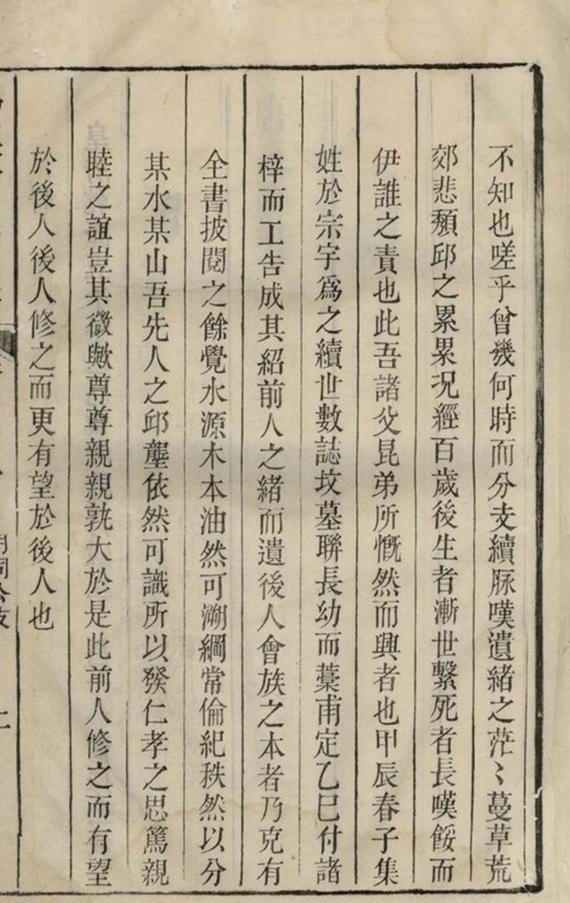 不知也嗟乎曾幾何時而分支續脉嘆遺緒之茫〻蔓草荒
郊悲頹邱之累累况經百歲後生者漸世繫死者長嘆餒而
伊誰之責也此吾諸父昆弟所慨然而興者也甲辰春子集
姓於宗字爲之續世數誌坟墓聯長幼而藁甫定乙巳付諸
梓而工告成其紹前人之緒而遺後人會族之本者乃克有
全書披閱之餘覺水源木本油然可溯綱常倫紀秩然以分
某水某山吾先人之邱壟依然可識所以發仁孝之思篤親
睦之誼豈其微歟尊尊親親孰大於是此前人修之而有望
於後人後人修之而更有望於後人也